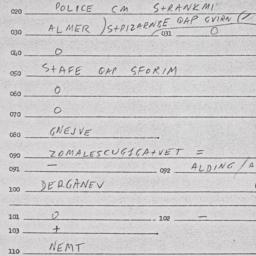 020 POLICE CM STRANKMI
030 ALMER GAP 031 O
040 O
050 STAFE GAP SFORIM
060 O
070 O
080 GNEJVE
090 =
091 — 092 ALDING/A
100 DERGANEV
101 O 102 —
103 +
110 NEMT